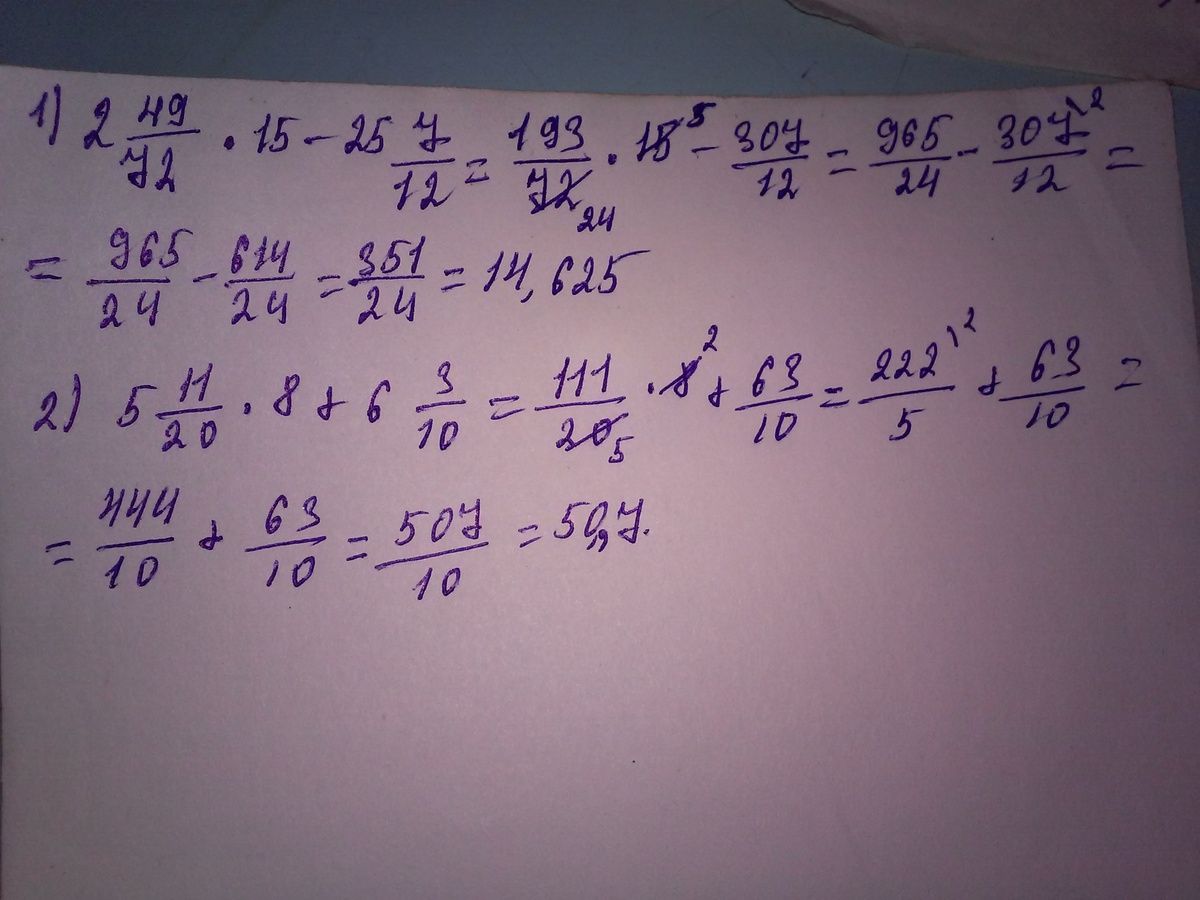 1) 2 49/72 · 15 - 25 7/12 = 193/72 24 · 15 5 - 307/12 = 965/24 - 307/12 \2 =
= 965/24 - 614/24 = 351/24 = 14,625
2) 5 11/20 · 8 + 6 3/10 = 111/20 5 · 8 2 + 63/10 = 222/5 \2 + 63/10 =
= 444/10 + 63/10 = 507/10 = 50,7.